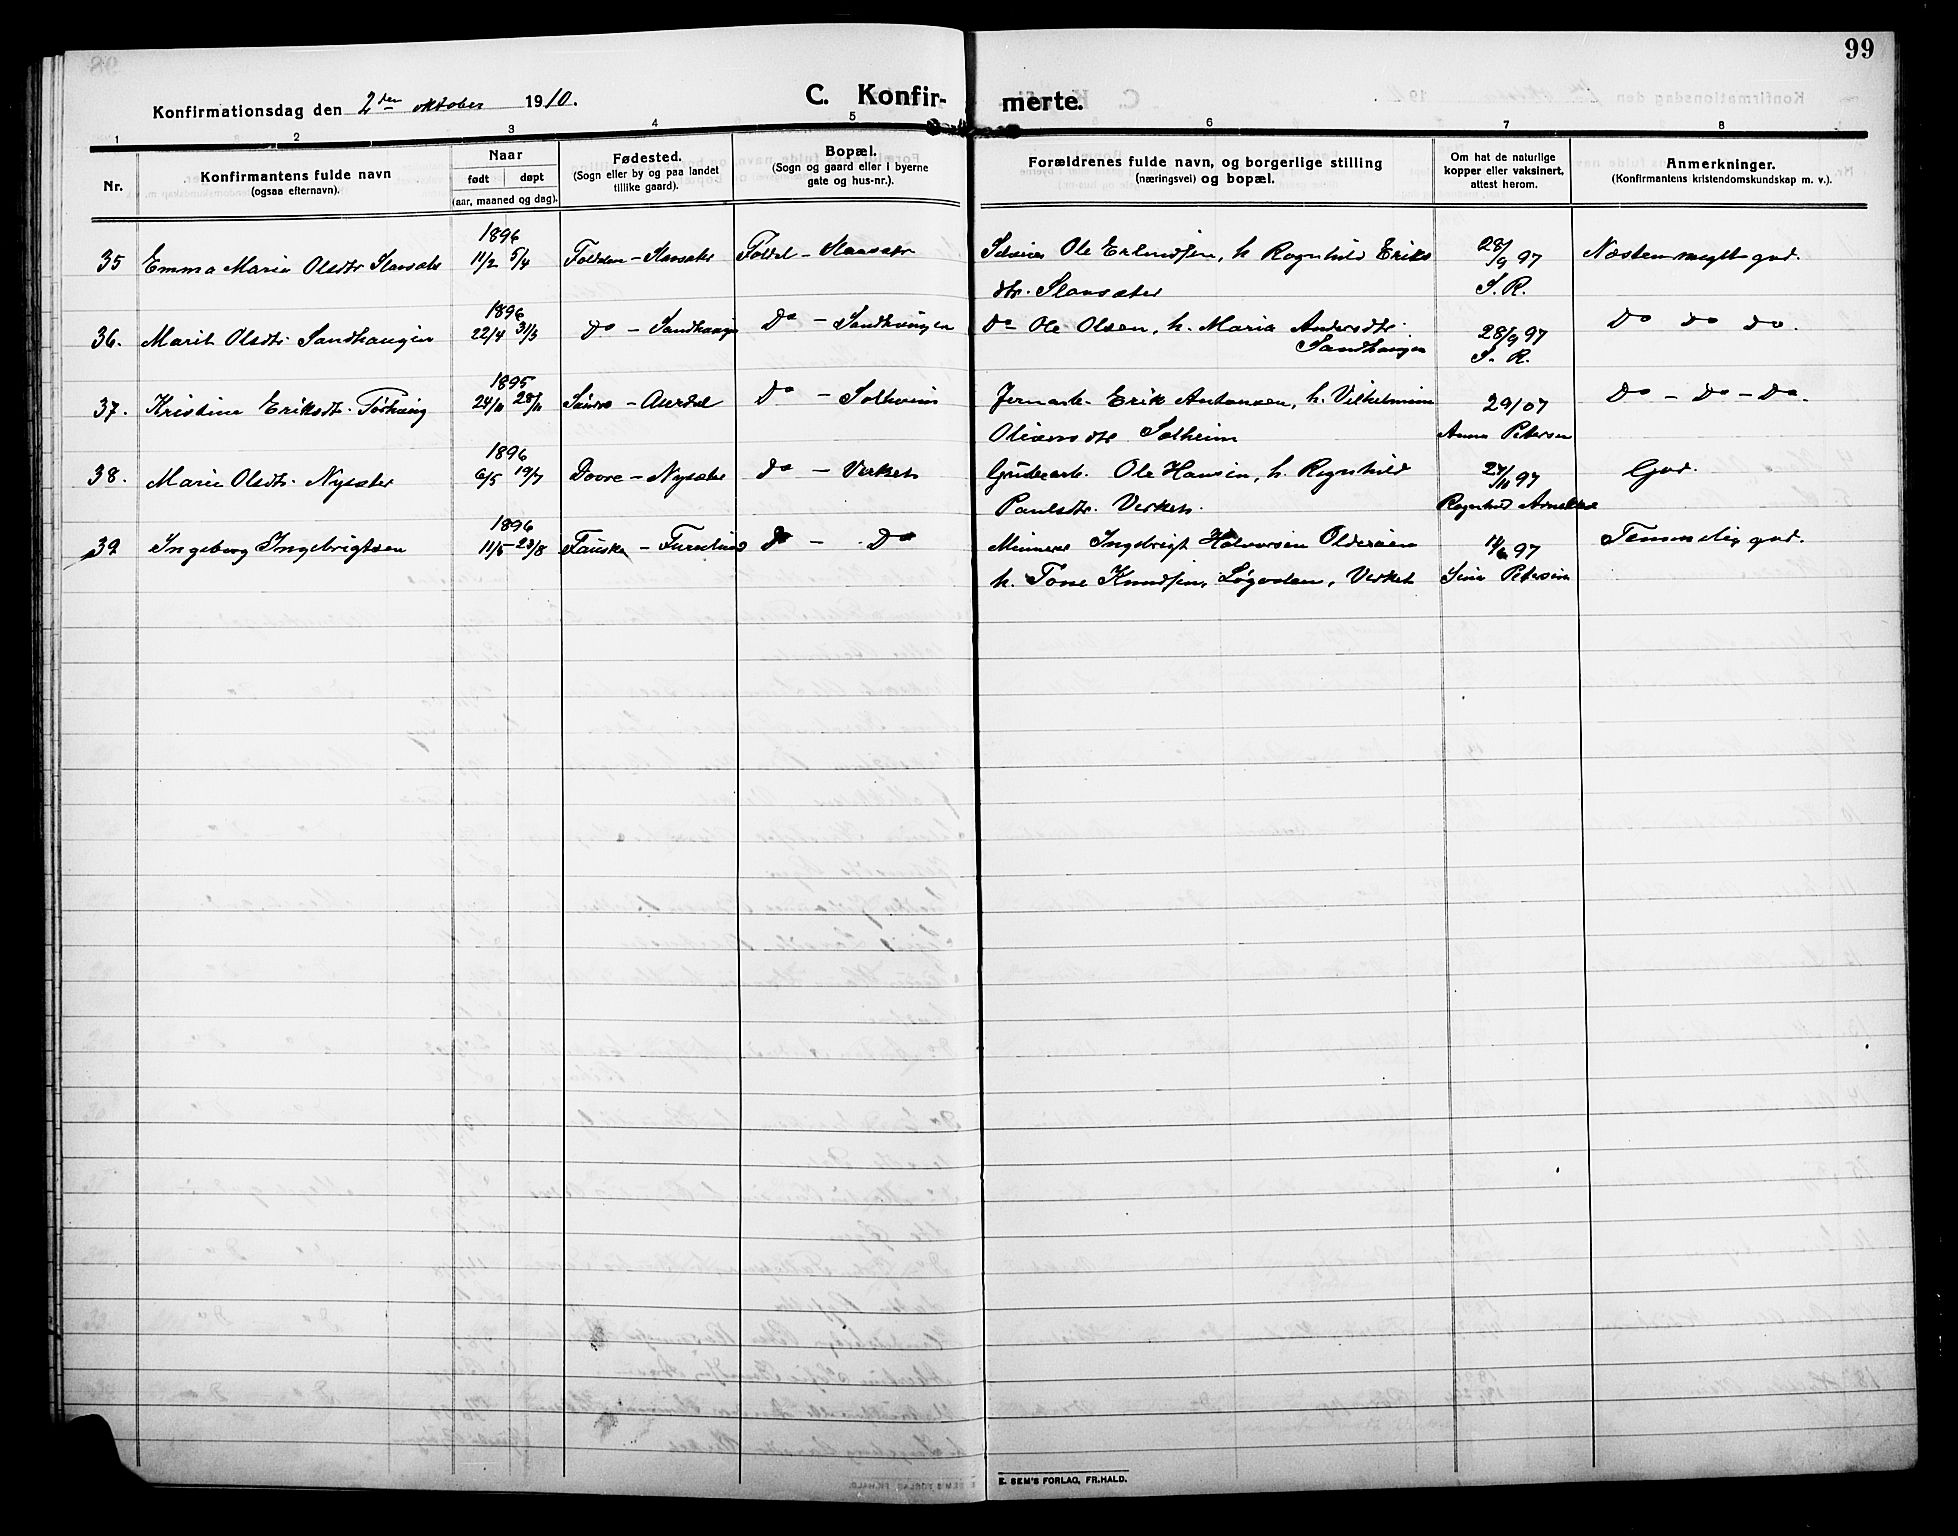 99
Konfirmationsdag den 2den oktober 1910.
C. Konfir- merte.
1 2 3 4 5 6 7 8
Nr.
Konfirmantens fulde navn
(ogsaa efternavn).
Naar
født døpt
(aar, maaned og dag).
Fødested.
(Sogn eller by og paa landet
tillike gaard).
Bopæl.
(Sogn og gaard eller i byerne
gate og hus-nr.).
Forældrenes fulde navn, og borgerlige stilling
(næringsvei) og bopæl.
Om hat de naturlige
kopper eller vaksinert,
attest herom.
Anmerkninger.
(Konfirmantens kristendomskundskap m. v.).
1896
35 Emma Marie Olsdtr. 11/2 5/4 Folldal Ole Erlendsen, h. Ragnhild Eriks 28/9 97 Næsten meget god.
dtr. S. R.
1896
36. Marit Olsdtr. Sandhaugen 22/4 31/5 Do - Sandhaugen Do - Sandhaugen Do Ole Olsen, h. Maria Andersdtr. 28/9 97 Do Do Do.
Sandhaugen S. R.
1895
37. Kristine Eriksdtr. 24/11 28/11 Søndre - Aurdal Do - Solheim Jernarb. Erik Antonsen, h. Vilhelmine 29/07 Do - Do - Do.
Solheim Anna Petersen
1896
38. Marie Olsdtr. Nysæter 6/5 19/7 Dovre - Nysæter Do - Verket Grubearb. Ole Hansen, h. Ragnhild 97 God.
Paulsdtr. Verket. Ragnhild
1896
39 Ingeborg Ingebrigtsen 11/5 23/8 Fauske - Furulund Do - Do Minerer Ingebrigt Halvorsen Olderøien 97 Temmelig god.
h. Tone Knudsen, Løgodden, Verket Petersen
E. SEM'S FORLAG, FR.HALD.